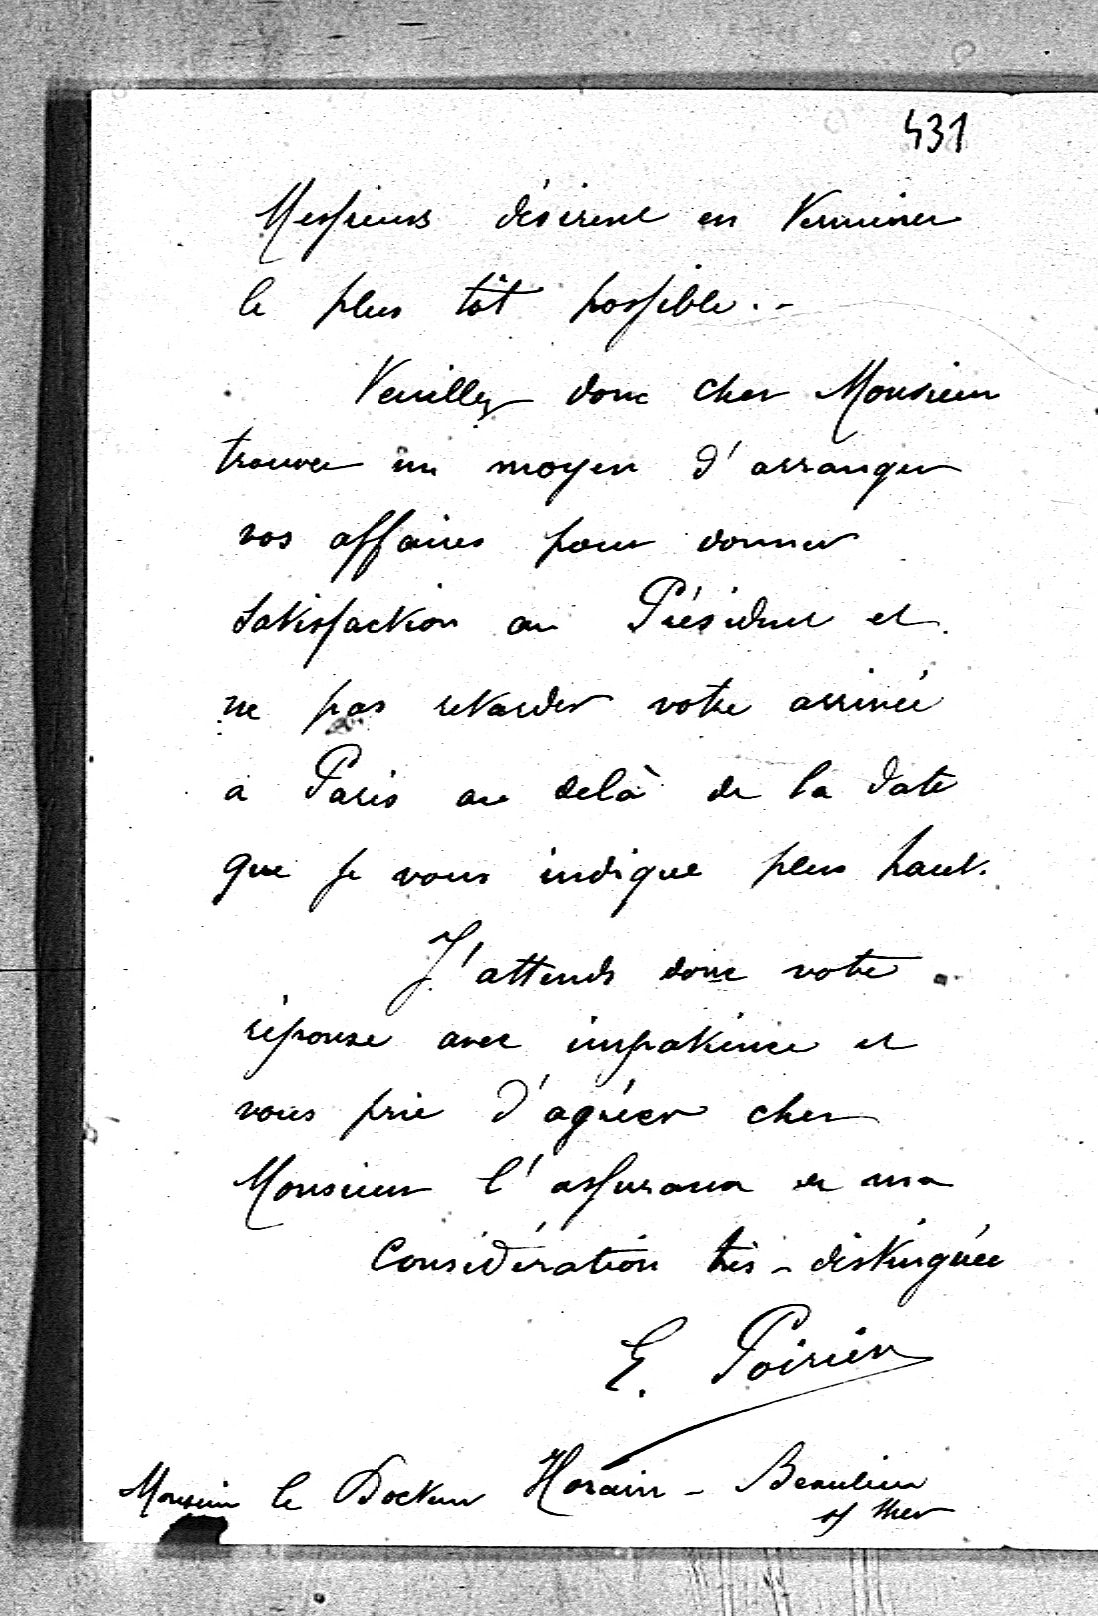 431
Messieurs désirent en terminer
le plus tôt possible.-
Veuillez donc cher Monsieur
trouver un moyen d'arranger
vos affaires pour donner
satisfaction au Président et
ne pas retarder votre arrivée
a Paris au delà de la date
que je vous indique plus haut.
J'attends donc votre
réponse avec impatience et
vous prie d'agréer cher
Monsieur l'assurance de ma
considération très-distinguée
E. Poirier
Monsieur le Docteur Horain - Beaulieu
s/ Mer